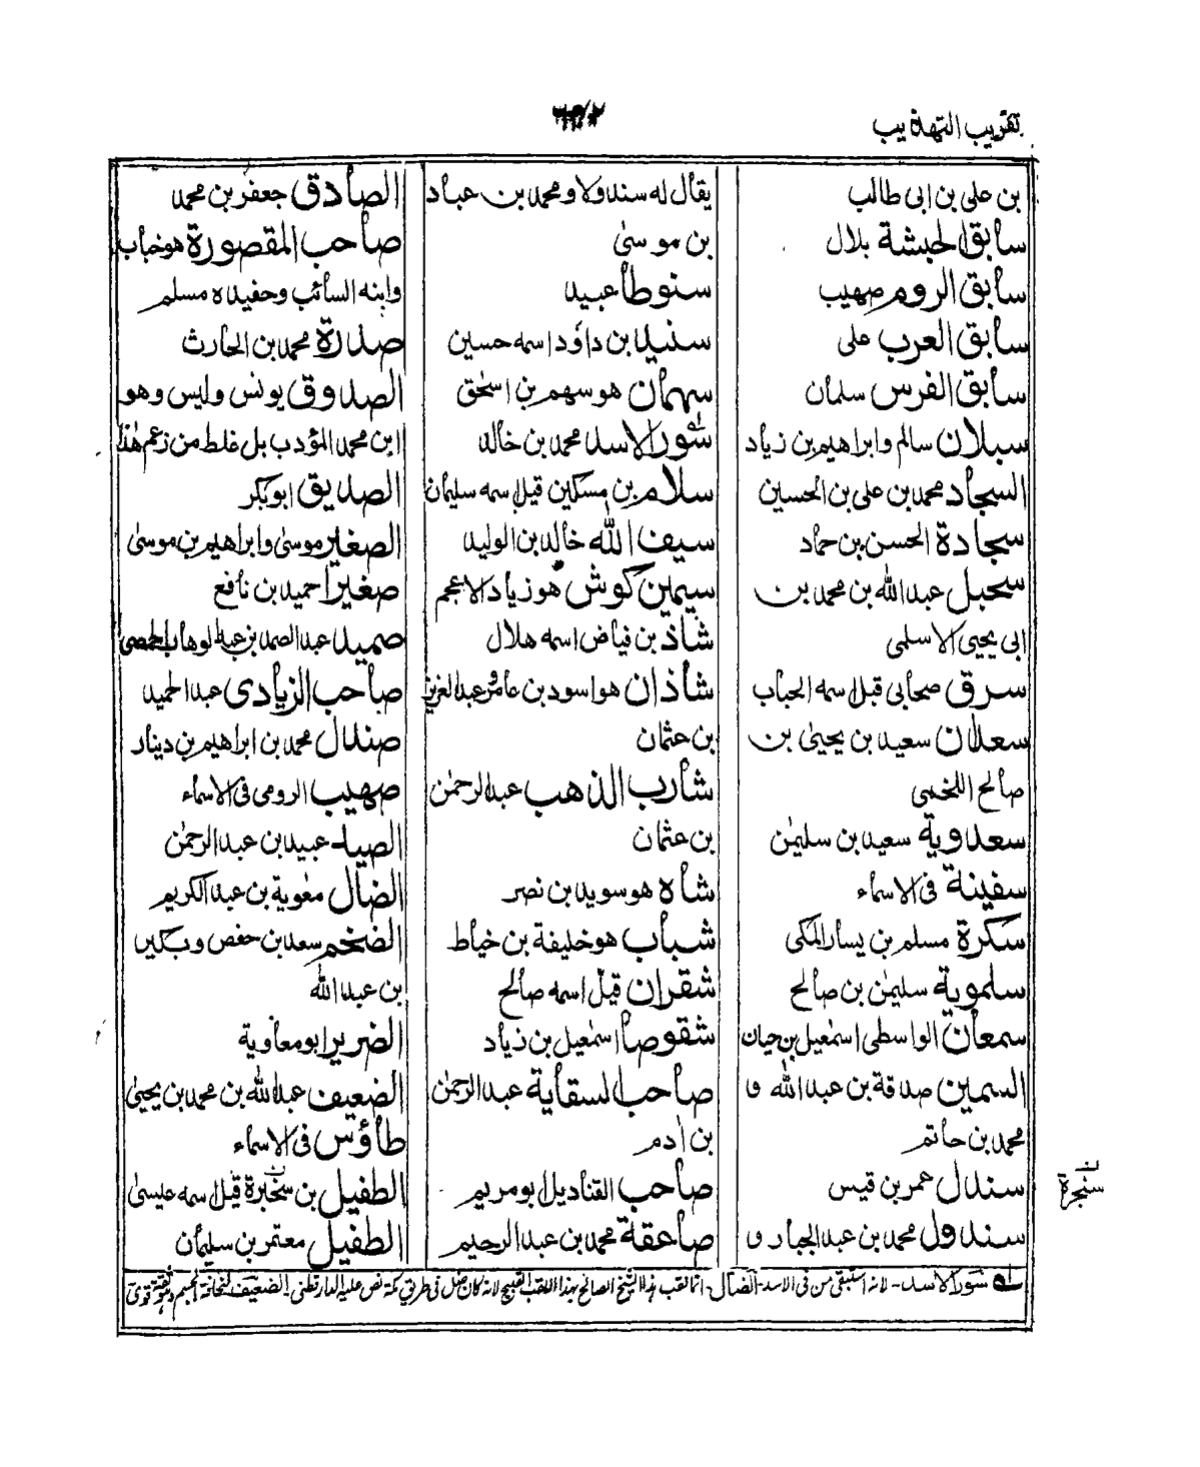 تقريب التهذيب
بن على بن ابى طالب
سابق الحبشة بلال
سابق الروم صهيب
سابق العرب على
سابق الفرس سلمان
سبلان سالم وابراهيم بن زياد
السجاد محمد بن على بن الحسين
سجادة الحسن بن حماد
سحبل عبدالله بن محمد بن
ابى يحيى الاسلمى
سرق صحابى قيل اسمه الحباب
سعدان سعيد بن يحيىٰ بن
صالح اللخمى
سعدوية سعيد بن سليمٰن
سفينة فى الاسماء
سكرة مسلم بن يسار المكى
سلموية سليمٰن بن صالح
سمعان الواسطى اسمٰعيل بن حيان
السمين صدقة بن عبدالله و
محمد بن حاتم
سندل عمر بن قيس
سندول محمد بن عبدالجبار و
يقال له سندولا و محمد بن عباد
بن موسىٰ
سنوطا عبيد
سنيد بن داؤد اسمه حسين
سهمان هو سهم بن اسحٰق
سور الاسد محمد بن خالد
سلام بن مسكين قيل اسمه سليمان
سيف الله خالد بن الوليد
سيمين كوش هو زياد الاعجم
شاذ بن فياض اسمه هلال
شاذان هو اسود بن عامر و عبدالعزيز
بن عثمان
شارب الذهب عبدالرحمٰن
بن عثمان
شاه هو سويد بن نصر
شباب هو خليفة بن خياط
شقران قيل اسمه صالح
شقوصا اسمٰعيل بن زياد
صاحب السقاية عبدالرحمٰن
بن ادم
صاحب القناديل ابو مريم
صاعقة محمد بن عبدالرحيم
الصادق جعفر بن محمد
صاحب المقصورة هو خباب
وابنه السائب وحفيده مسلم
صدرة محمد بن الحارث
الصدوق يونس وليس وهو
ابن محمد المؤدب بل غلط من زعم هذا
الصديق ابوبكر
الصغير موسىٰ وابراهيم بن موسىٰ
صغيرا حميد بن نافع
صميد عبدالصمد بن عبدالوهاب الحمصى
صاحب الزيادى عبدالحميد
صندل محمد بن ابراهيم بن دينار
صهيب الرومى فى الاسماء
الصيد عبيد بن عبدالرحمٰن
الضال معٰوية بن عبدالكريم
الضخم سعد بن حفص وبكير
بن عبدالله
الضرير ابو معاوية
الضعيف عبدالله بن محمد بن يحيىٰ
طاؤس فى الاسماء
الطفيل بن سخبرة قيل اسمه عيسىٰ
الطفيل معتمر بن سليمان
سنجرة
سور الاسد - لانه استبقى من فى الاسد - الضال - انما لقب هذا الشيخ الصالح بهذا اللقب القبيح لانه كان ضل فى طريق مكة نص عليه الدارقطنى - الضعيف لنحافة الجسم وثقته قوى